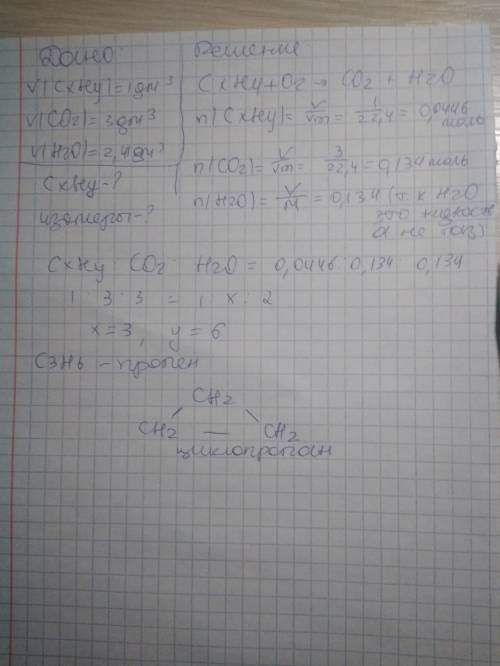 Дано:
V(CxHy)=1дм³
V(CO2)=3дм³
V(H2O)=2,4дм³
CxHy-?
изомеры-?
Решение
CxHy+O2→ CO2 + H2O
n(CxHy)= V/Vm = 1/22,4 = 0,0446 моль
n(CO2)= V/Vm = 3/22,4 = 0,134 моль
n(H2O)= V/M = 0,134 (т.к H2O
это жидкость
а не газ)
CxHy : CO2 : H2O = 0,0446 : 0,134 : 0,134
1 : 3 : 3 = 1 : x : 2
x=3, y=6
C3H6 - пропен
CH2
CH2 — CH2
циклопропан